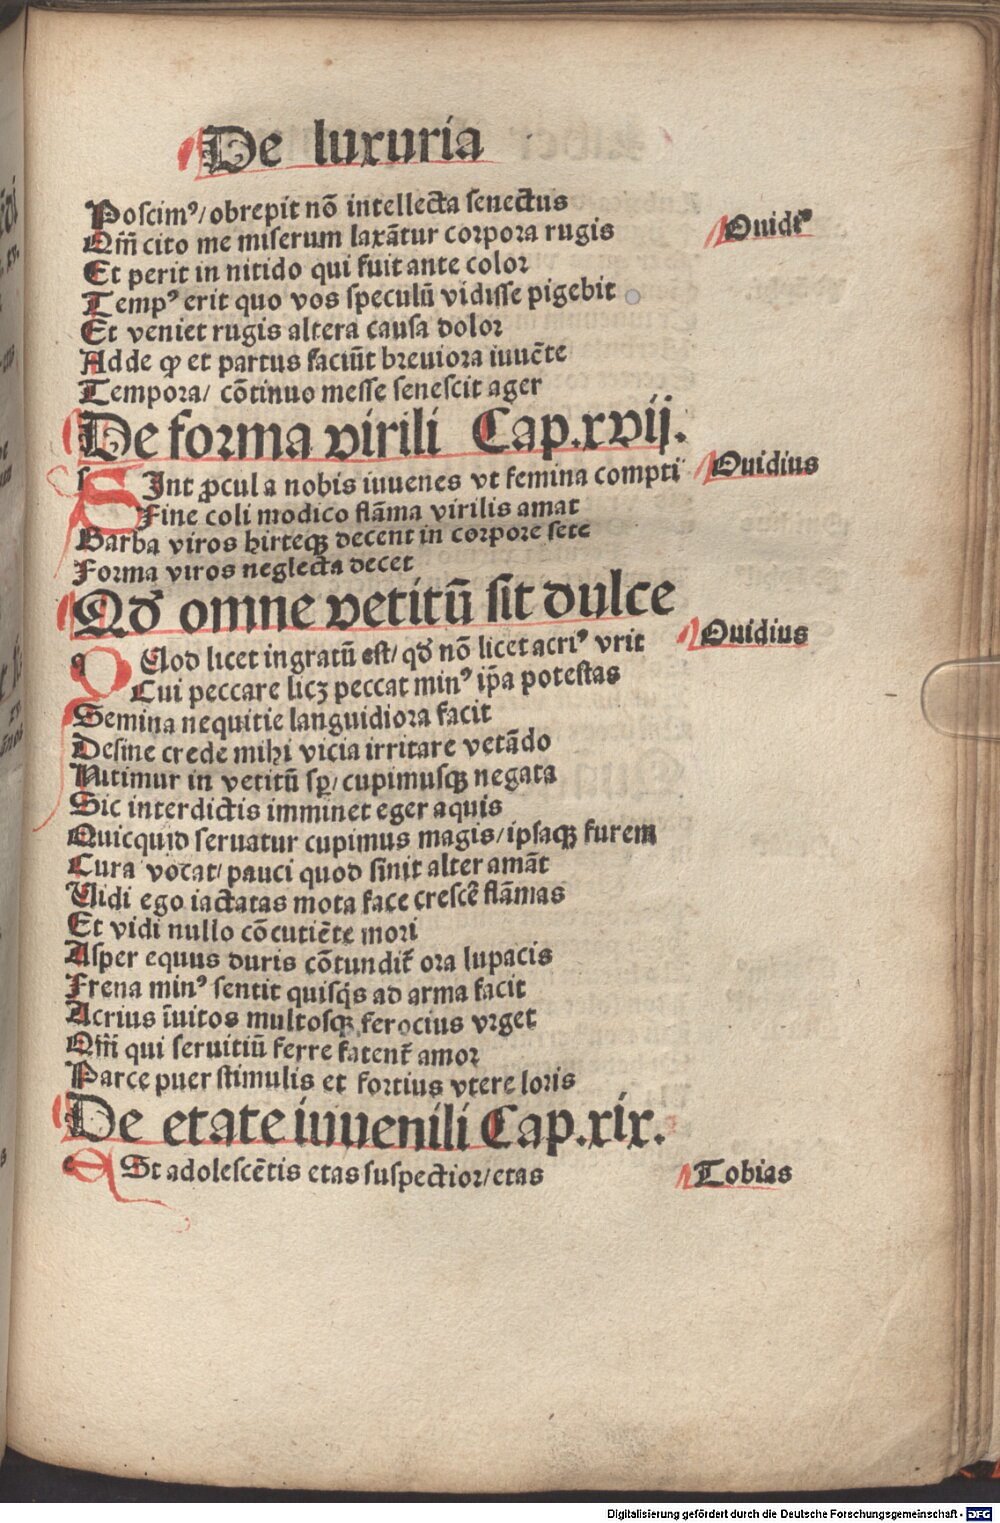 De luxuria
Poscimꝰ/ obrepit nō intellecta senectus
Qm̄ cito me miserum laxātur corpora rugis
Ouidiꝰ
Et perit in nitido qui fuit ante color
Tempꝰ erit quo vos speculū vidisse pigebit
Et veniet rugis altera causa dolor
Adde ꝙ et partus faciūt breuiora iuuēte
Tempora/ cōtinuo messe senescit ager
De forma virili Cap.xvij.
SInt ꝓcul a nobis iuuenes vt femina compti
Ouidius
Fine coli modico flāma virilis amat
Barba viros hirteqꝫ decent in corpore sete
Forma viros neglecta decet
Qď omne vetitū sit dulce
Ouidius
QUod licet ingratū est/ qď nō licet acriꝰ vrit
Cui peccare licꝫ peccat minꝰ ip̄a potestas
Semina nequitie languidiora facit
Desine crede mihi vicia irritare vetādo
Nitimur in vetitū sꝑ/ cupimusqꝫ negata
Sic interdictis imminet eger aquis
Quicquid seruatur cupimus magis/ ipsaqꝫ furem
Cura vocat/ pauci quod sinit alter amāt
Uidi ego iactatas mota face crescē flāmas
Et vidi nullo cōcutiēte mori
Asper equus duris cōtundit̄ ora lupacis
Frena minꝰ sentit quisq̄s ad arma facit
Acrius īuitos multosqꝫ ferocius vrget
Qm̄ qui seruitiū ferre fatent̄ amor
Parce puer stimulis et fortius vtere loris
De etate iuuenili Cap.xix.
ESt adolescētis etas suspectior/ etas
Tobias
Digitalisierung gefördert durch die Deutsche Forschungsgemeinschaft - DFG